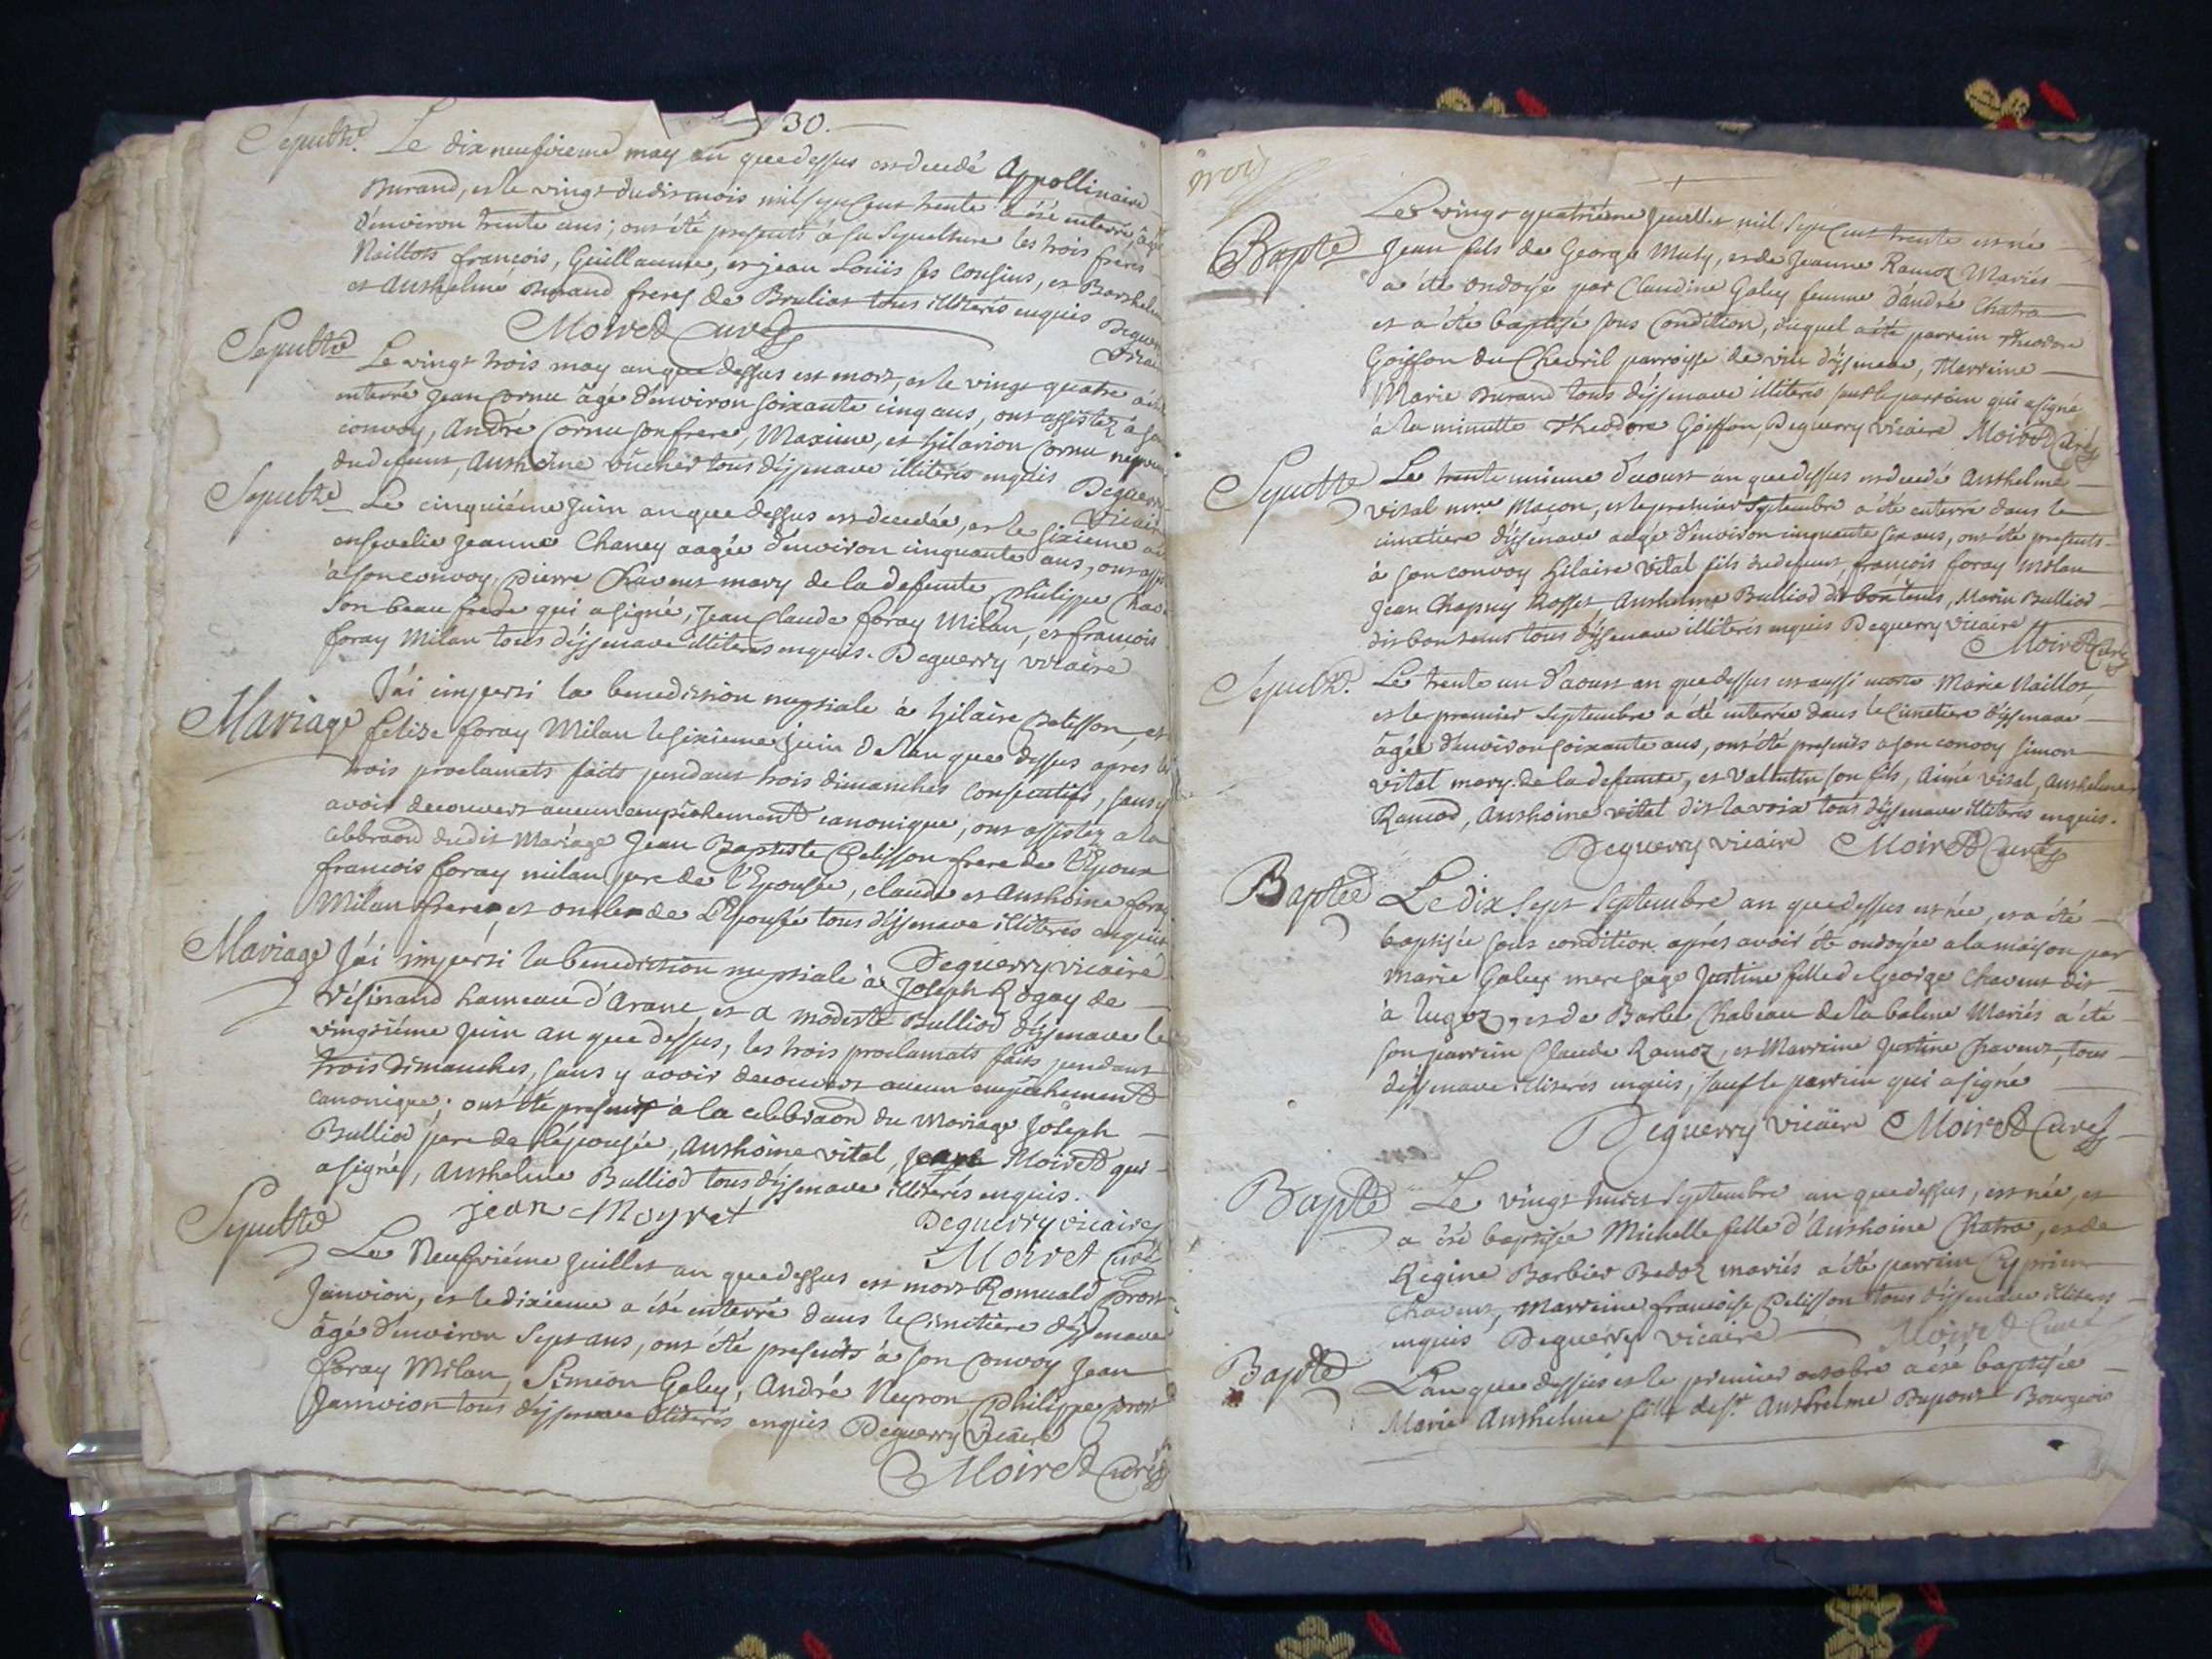 30.
Sepultre. Le dix neufvieme may an que dessus est decedé Appollinaire
Burand, et le vingt dudit mois mil sept cent trente a été enterré, agé
d'environ trente ans; ont été presents à sa sepulture les trois freres
Naillots françois, Guillaume, et jean Loüis ses cousins, et Barthelm
et Anthelme Burand freres de Brulias tous illiterés enquis Deguerry
Moiret Curé Vicai
Sepultre Le vingt trois may an que dessus est mort, et le vingt quatre a été
enterré jean Cornu âgé d'environ soixante cinq ans, ont assistez à son
convoy, André Cornu son frere, Maxime, et hilarion Cornu neveux
du defunt, Anthoine vücher tous d'jzenave illiterés enquis Deguerry
Vicaire
Sepultre Le cinquiéme juin an que dessus est decedée, et le sixieme a été
ensevelie jeanne Chaney aagée d'environ cinquante ans, ont assi
à son convoy, Pierre Chavent mary de la defunte, Philippe Chav
son beau frere qui a signé, Jean Claude foray Milan, et françois
foray Milan tous d'jzenave illiterés enquis. Deguerry vicaire
J'ai imparti la benediction nuptiale à hilaire Pelisson, et
Mariage felize foray Milan le sixieme juin de l'an que dessus apres les
trois proclamats faits pendant trois dimanches consecutifs, sans y
avoir decouvert aucun empêchement canonique; ont assistez a la
celebraon dudit Mariage Jean Baptiste Pelisson frere de l'Epoux
francois foray milan pere de l'Epousée, claude et Anthoine foray
Milan freres et oncles de l'Epousée tous d'jzenave illiterés enquis
Deguerry vicaire
Mariage J'ai imparti la benediction nuptiale à Joseph Rogay de
Résinand hameau d'Arane, et a modeste Bulliod d'jzenave le
vingtiéme juin an que dessus, les trois proclamats faits pendant
trois dimanches, sans y avoir decouvert aucun empêchement
canonique; ont été presents à la celebraon du Mariage Joseph
Bulliod pere de l'épousée, Anthoine vital, jean Moiret qui
a signé, Anthelme Bulliod tous d'jzenave illiterés enquis.
jean Moyret Deguerry vicaire
Moiret Curé
Sepultre Le Neufviéme juillet an que dessus est mort Romuald Prost
Janvion, et le dixieme a été enterré dans le Cimetiere d'jzenave
âgé d'environ sept ans, ont été presents à son convoy jean
foray Milan, Simeon Galey, André Neyron, Philippe Prost
Janvion tous d'jzenave illiterés enquis Deguerry Vicaire
Moiret Curé
trois
Le vingt quatriéme juillet mil sept cent trente est né
Bapte Jean fils de George Muty, et de Jeanne Ramoz Mariés
a été ondoyé par Claudine Galey femme d'andré Chatra
et a été baptisé sous Condition, duquel a été parrein Theodore
Goiffon du Chevril parroisse de vieu d'jzenave, Marreine
Marie Burand tous d'jzenave illiterés sauf le parrein qui a signé
à la minutte Theodore Goiffon, Deguerry vicaire Moiret Curé
Sepultre Le trente unieme d'aoust an que dessus est decedé Anthelme
vital Maçon, et le premier Septembre a été enterré dans le
cimetiere d'jzenave aagé d'environ cinquante six ans, ont été presents
à son convoy hilaire vital fils du defunt, françois foray Milan
Jean Chapuy Rosset, Anthelme Bulliod dit bontems, Marin Bulliod
dit bontems tous d'jzenave illiterés enquis Deguerry vicaire
Moiret Curé
Sepultre. Le trente un d'aoust an que dessus est aussi morte Marie Naillot,
et le premier Septembre a été enterrée dans le Cimetiere d'jzenave
âgée d'environ soixante ans, ont été presents a son convoy Simon
vital mary de la defunte, et Valentin son fils, Aimé vital, Anthelme
Ramod, Anthoine vital dit lavoix tous d'jzenave illiterés enquis.
Deguerry vicaire Moiret Curé
Baptée Le dix sept Septembre an que dessus est née, et a été
baptisée sous condition aprés avoir été ondoyée a la maison par
Marie Galey mere sage Justine fille de George Chavent dit
à lugoz, et de Barbe Chabeau de la balme Mariés a été
son parrein Claude Ramoz, et Marreine Justine Chavent, tous
d'jzenave illiterés enquis, sauf le parrein qui a signé
Deguerry Vicaire Moiret Curé
Bapte Le vingt huict Septembre an que dessus, est née, et
a été baptisée Michelle fille d'Anthoine Chatra, et de
Regine Barbier Bedoz mariés a été parrein Cyprien
Chavent, Marreine françoise Pelisson tous d'jzenave illiterés
enquis Deguerry vicaire Moiret Curé
Bapte L'an que dessus et le premier octobre a été baptisée
Marie Anthelme fille de Sr. Anthelme Dupont Bourgeois